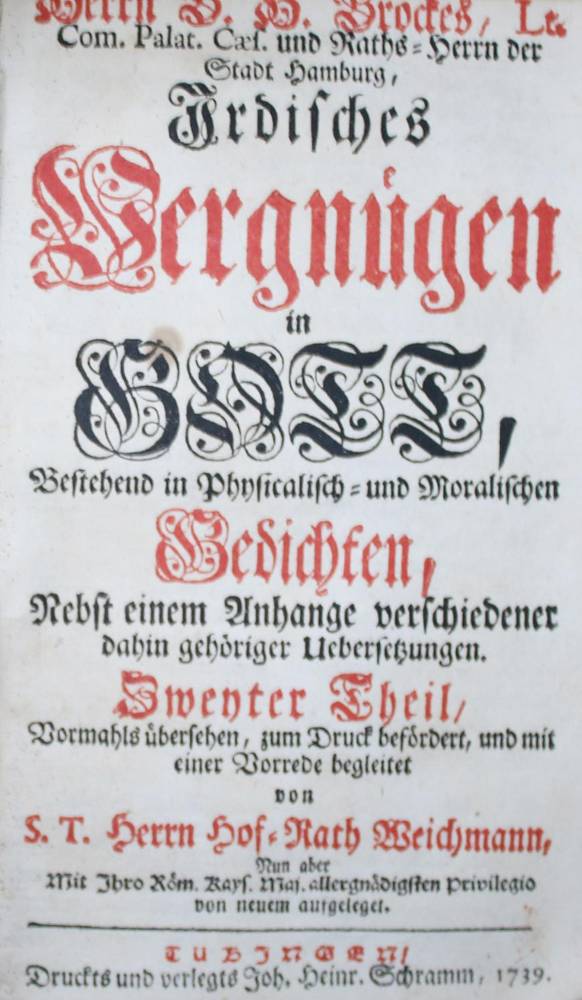 Herrn B. H. Brockes, Lt.
Com. Palat. Cæſ. und Raths-Herrn der
Stadt Hamburg,
Irdiſches
Vergnuͤgen
in
GOTT,
Beſtehend in Phyſicaliſch- und Moraliſchen
Gedichten,
Nebſt einem Anhange verſchiedener
dahin gehöriger Ueberſetzungen.
Zweyter Theil,
Vormahls uͤberſehen, zum Druck befördert, und mit
einer Vorrede begleitet
von
S. T. Herrn Hof-Rath Weichmann,
Nun aber
Mit Ihro Röm. Kayſ. Maj. allergnädigſten Privilegio
von neuem aufgeleget.
TUBINGEN,
Druckts und verlegts Joh. Heinr. Schramm, 1739.